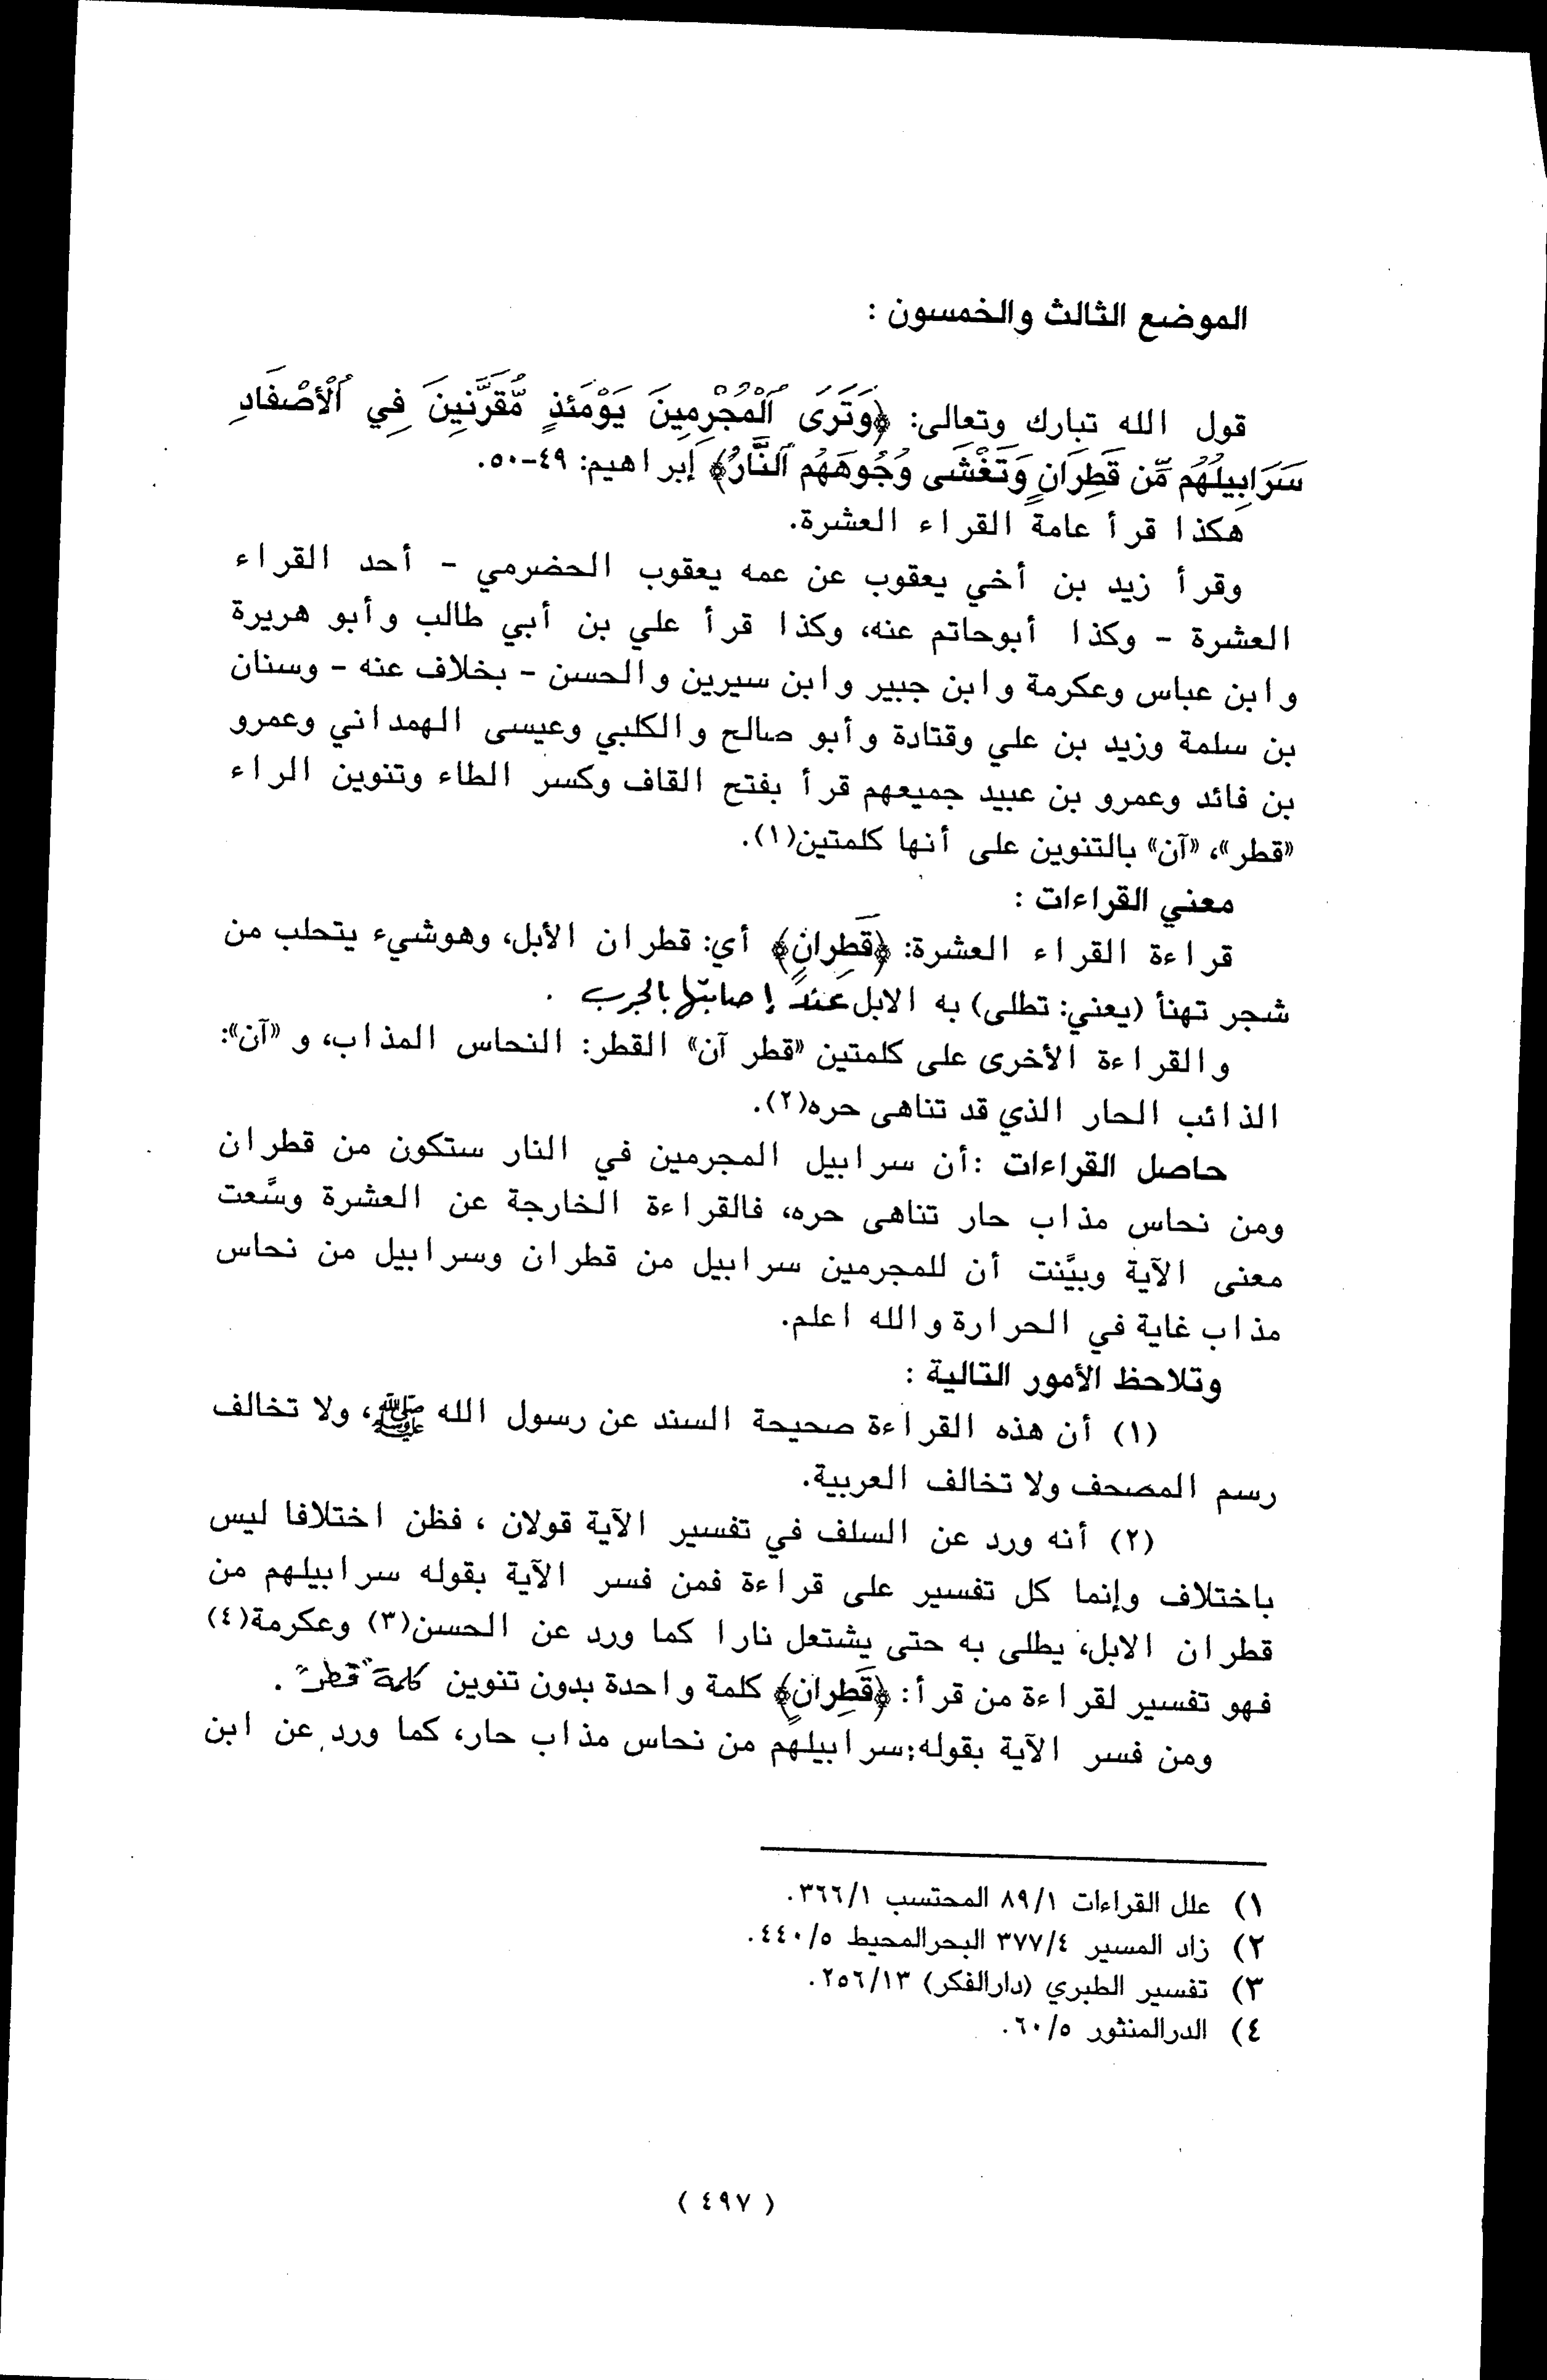 الموضع الثالث والخمسون :
قول الله تبارك وتعالى: ﴿وَتَرَى ٱلْمُجْرِمِينَ يَوْمَئذٍ مُّقَرَّنِينَ فِي ٱلْأصْفَادِ
سَرَابِيلُهُم مِّن قَطِرَانٍ وَتَغْشَى وُجُوهَهُم ٱلنَّارُ﴾ إبراهيم: ٤٩-٥٠.
هكذا قرأ عامة القراء العشرة.
وقرأ زيد بن أخي يعقوب عن عمه يعقوب الحضرمي - أحد القراء
العشرة - وكذا أبوحاتم عنه، وكذا قرأ علي بن أبي طالب وأبو هريرة
وابن عباس وعكرمة وابن جبير وابن سيرين والحسن - بخلاف عنه - وسنان
بن سلمة وزيد بن علي وقتادة وأبو صالح والكلبي وعيسى الهمداني وعمرو
بن فائد وعمرو بن عبيد جميعهم قرأ بفتح القاف وكسر الطاء وتنوين الراء
«قطر»، «آن» بالتنوين على أنها كلمتين(١).
معني القراءات :
قراءة القراء العشرة: ﴿قَطِرانٍ﴾ أي: قطران الأبل، وهوشيء يتحلب من
شجر تهنأ (يعني: تطلى) به الابل عند إصابتها بالجرب .
والقراءة الأخرى على كلمتين «قطر آن» القطر: النحاس المذاب، و «آن»:
الذائب الحار الذي قد تناهى حره(٢).
حاصل القراءات :أن سرابيل المجرمين في النار ستكون من قطران
ومن نحاس مذاب حار تناهى حره، فالقراءة الخارجة عن العشرة وسَّعت
معنى الآية وبيَّنت أن للمجرمين سرابيل من قطران وسرابيل من نحاس
مذاب غاية في الحرارة والله اعلم.
وتلاحظ الأمور التالية :
(١) أن هذه القراءة صحيحة السند عن رسول الله ﷺ، ولا تخالف
رسم المصحف ولا تخالف العربية.
(٢) أنه ورد عن السلف في تفسير الآية قولان ، فظن اختلافا ليس
باختلاف وإنما كل تفسير على قراءة فمن فسر الآية بقوله سرابيلهم من
قطران الابل، يطلى به حتى يشتعل نارا كما ورد عن الحسن(٣) وعكرمة(٤)
فهو تفسير لقراءة من قرأ: ﴿قَطِرانٍ﴾ كلمة واحدة بدون تنوين كلمة "قطر" .
ومن فسر الآية بقوله:سرابيلهم من نحاس مذاب حار، كما ورد عن ابن
١) علل القراءات ٨٩/١ المحتسب ٣٦٦/١.
٢) زاد المسير ٣٧٧/٤ البحرالمحيط ٤٤٠/٥.
٣) تفسير الطبري (دارالفكر) ٢٥٦/١٣.
٤) الدرالمنثور ٦٠/٥.
( ٤٩٧ )